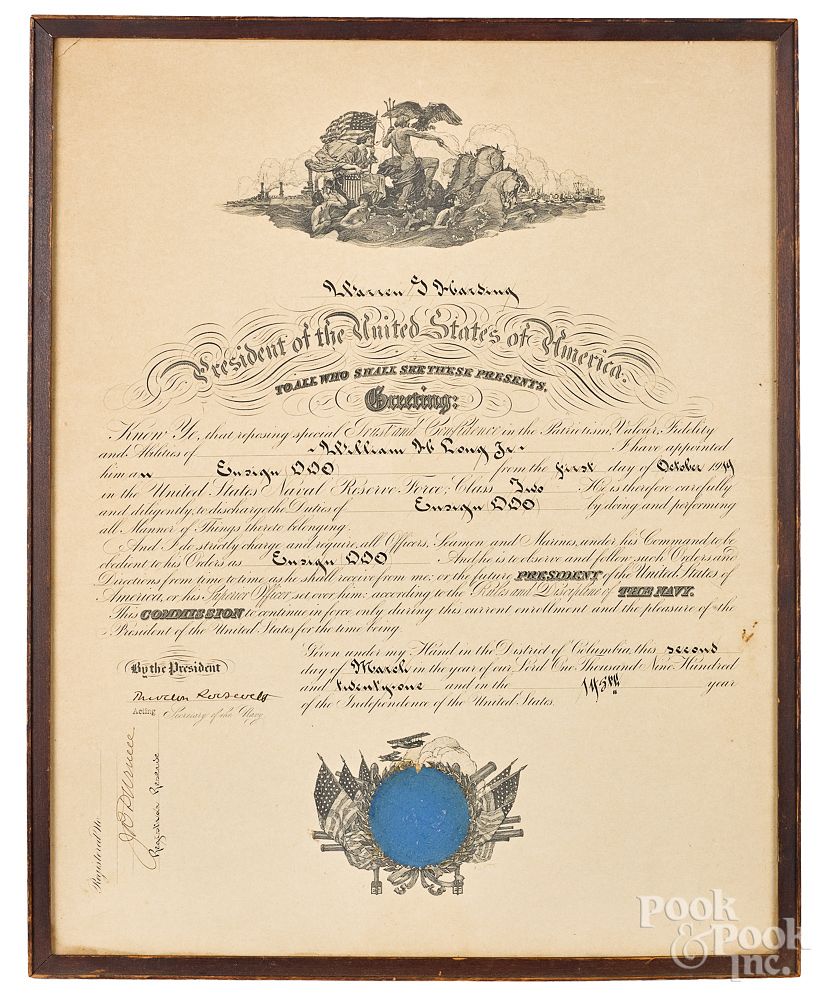 Warren G Harding
President of the United States of America.
TO ALL WHO SHALL SEE THESE PRESENTS,
Greeting:
Know Ye, that reposing special Trust and Confidence in the Patriotism, Valour, Fidelity
and Abilities of William H Long Jr I have appointed
him an Ensign DDO from the first day of October 1919
in the United States Naval Reserve Force; Class Two He is therefore carefully
and diligently to discharge the Duties of Ensign DDO by doing and performing
all Manner of Things thereto belonging.
And I do strictly charge and require all Officers, Seamen and Marines, under his Command to be
obedient to his Orders as Ensign DDO And he is to observe and follow such Orders and
Directions from time to time as he shall receive from me, or the future PRESIDENT of the United States of
America, or his Superior Officer set over him, according to the Rules and Discipline of THE NAVY.
This COMMISSION to continue in force only during this current enrollment and the pleasure of the
President of the United States for the time being.
Given under my Hand in the District of Columbia this second
day of March in the year of our Lord One Thousand Nine Hundred
and twenty-one and in the year
of the Independence of the United States.
By the President
Theodore Roosevelt
Acting Secretary of the Navy
Registered No
Registrar Reserve
POOK
& POOK
INC.